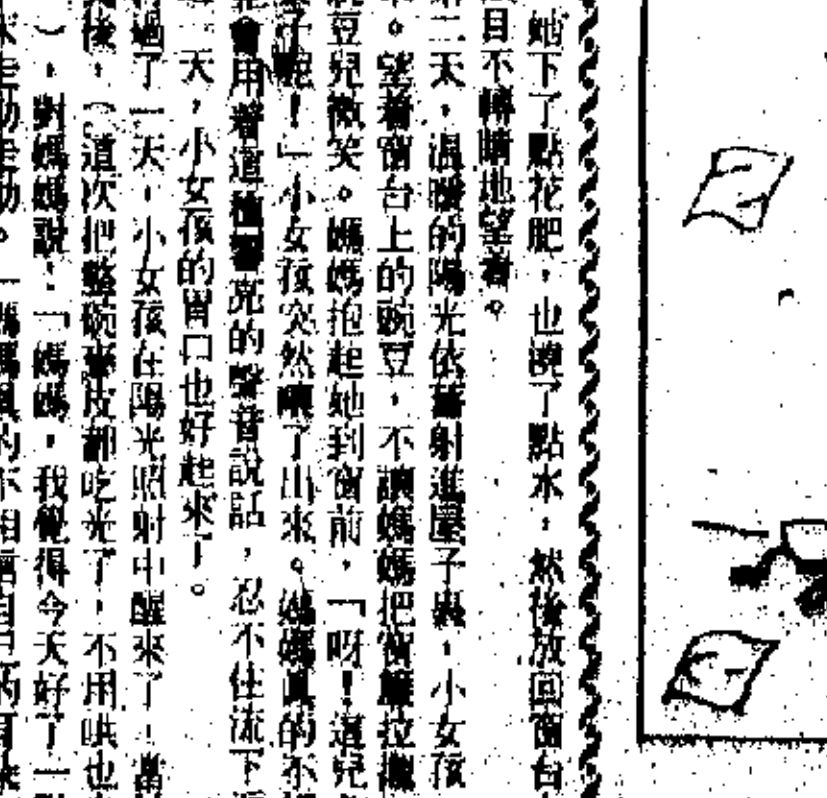 她下了點花肥，也澆了點水，然後放回窗台
目不轉睛地望着。
二天，溫暖的陽光依舊射進屋子裏，小女孩
。望着窗台上的豌豆，不讓媽媽把窗簾拉攏
豆兒微笑。媽媽抱起她到窗前，「呀！這兒
子呢！」小女孩突然嚷了出來。媽媽真的不
會用着這種響亮的聲音說話，忍不住流下
天，小女孩的胃口也好起來了。
過了一天，小女孩在陽光照射中醒來了！當
後，（這次把整碗麥皮都吃光了，不用哄也
），對媽媽說：「媽媽，我覺得今天好了一
走動走動。「媽媽真的不相信自己的耳朵